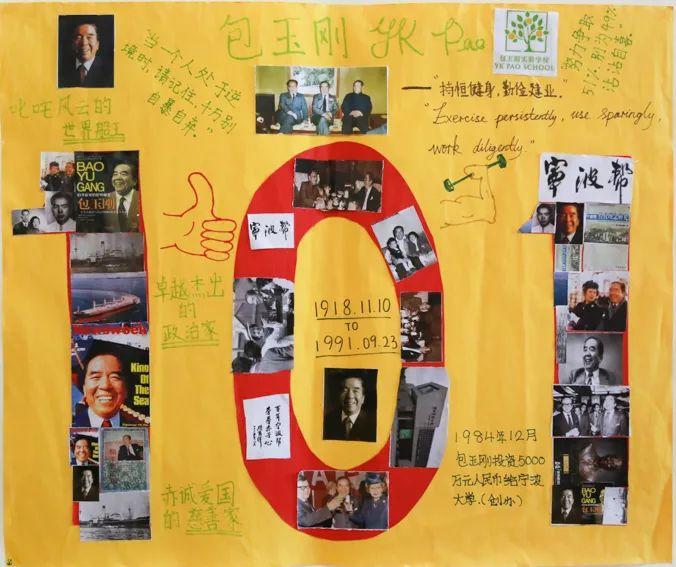 包玉刚 YK Pao
包玉刚实验学校
YK PAO SCHOOL
当一个人处于逆
境时，请记住，千万别
自暴自弃。"
努力争取
51%，别为49%
沾沾自喜。
"持恒健身，勤俭建业。"
"Exercise persistently, use sparingly,
work diligently."
叱咤风云的
世界船王
BAO
YU
GANG
包玉刚
宁波帮
宁波帮
卓越杰出
的
政治家
1918.11.10
TO
1991.09.23
Newsweek
King
Of The
Sea
赤诚爱国
的慈善家
1984年12月
包玉刚投资5000
万元人民币给宁波
大学.(创办)
BAO YU
GANG
包玉刚